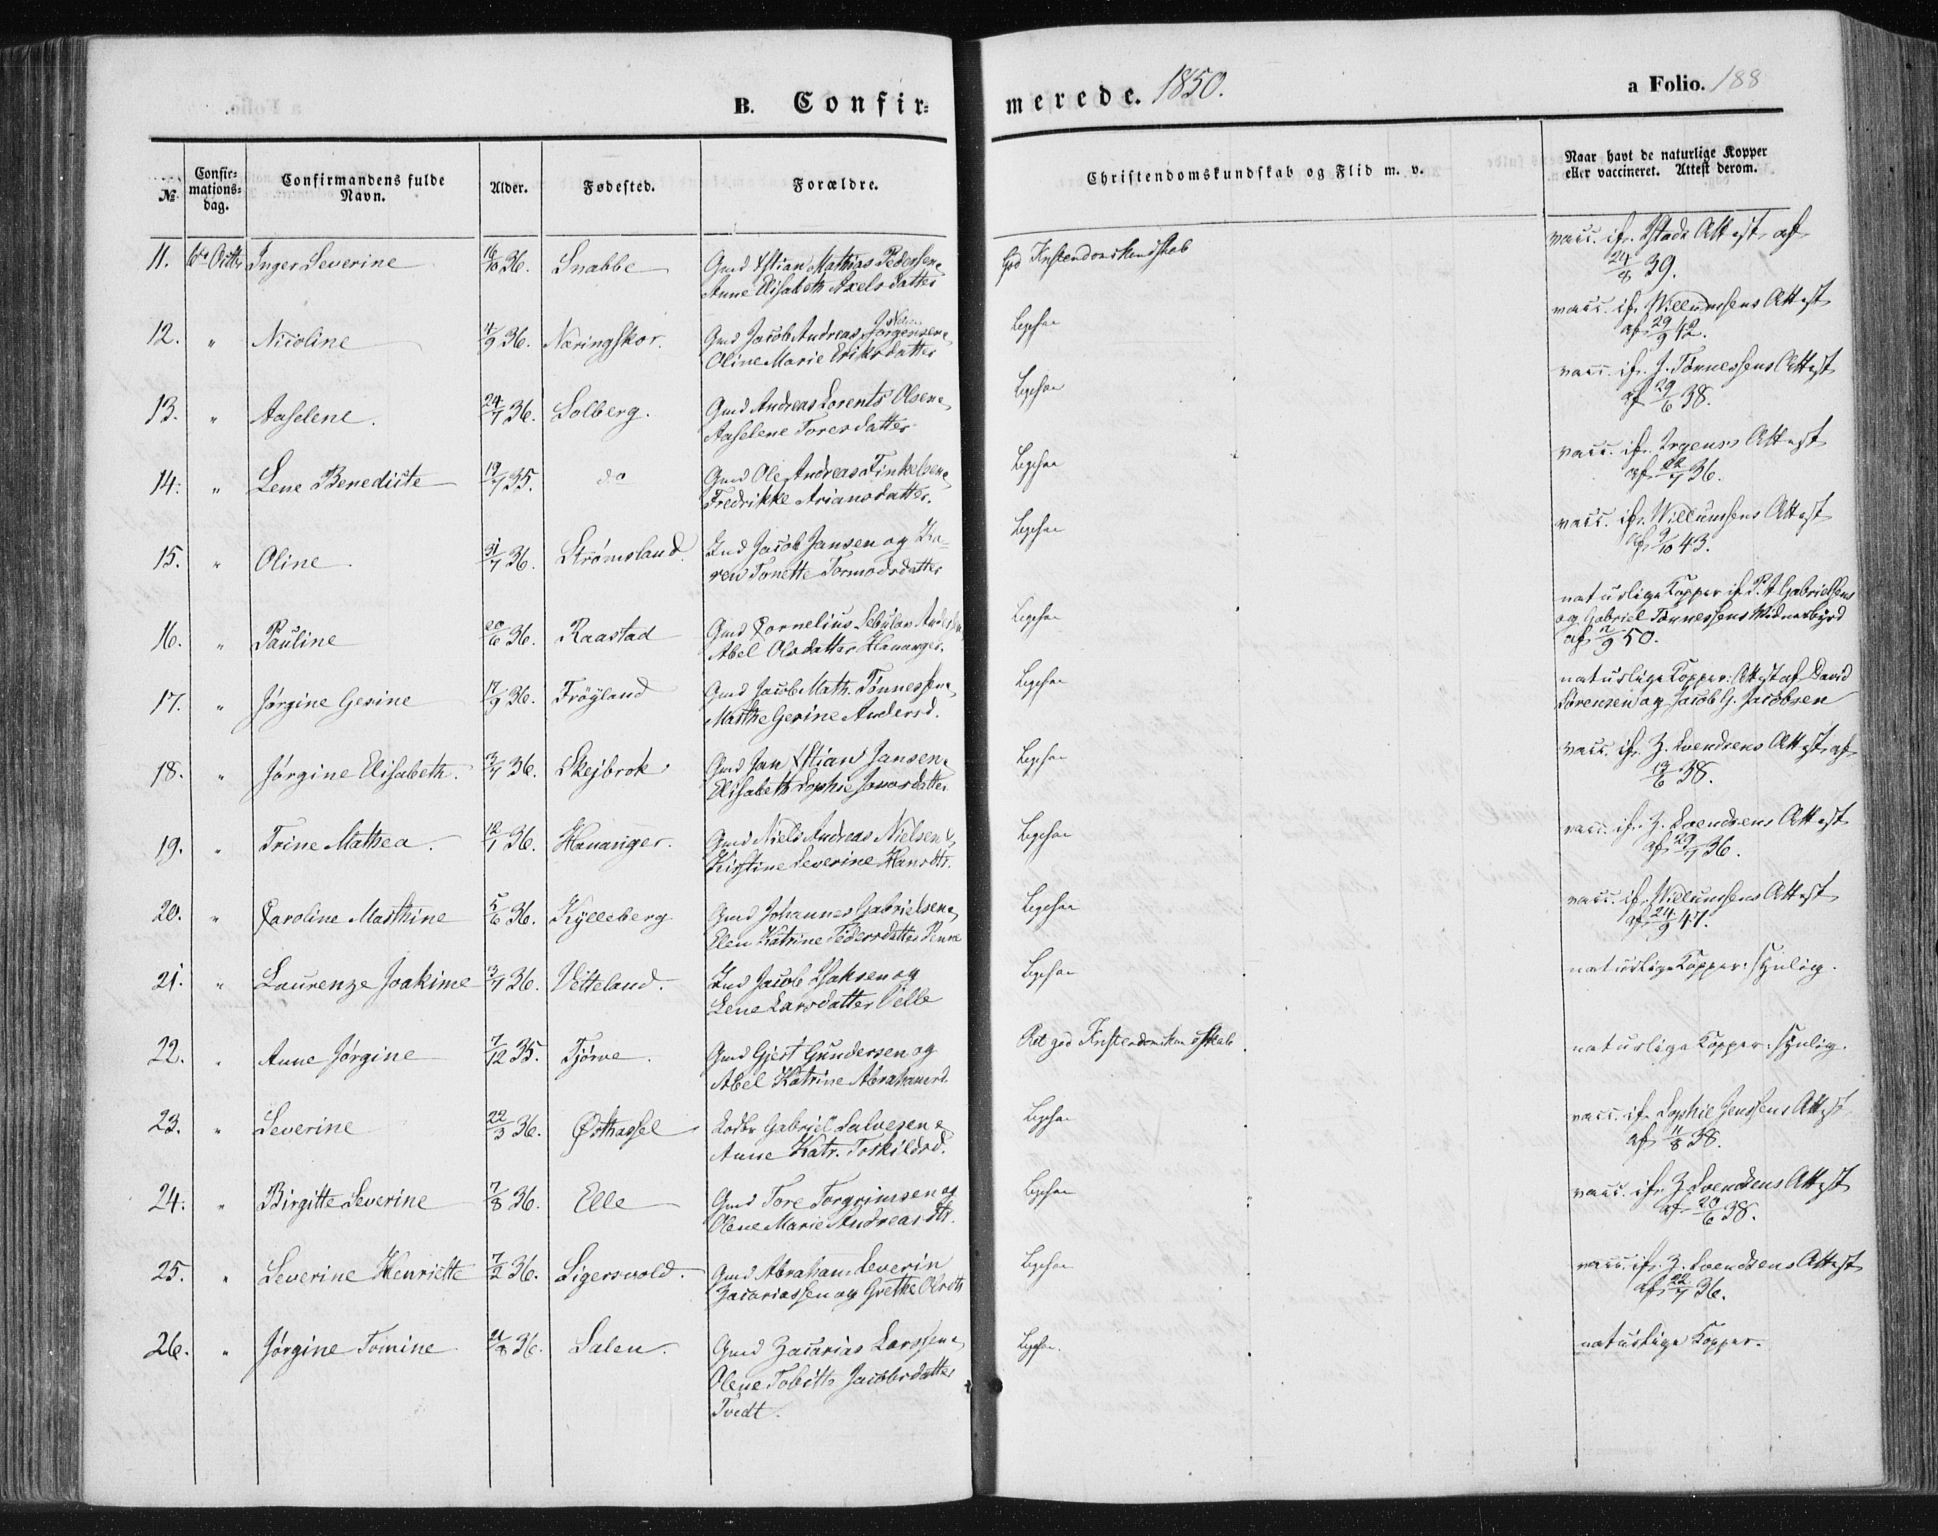 B. Confir= merede. 1850. a Folio. 188
№ Confir= mations= dag. Confirmandens fulde Navn. Alder. Fødested. Forældre. Christendomskundskab og Flid m. v. Naar havt de naturlige Kopper eller vaccineret. Attest derom.
11. Inger Severine 16/10 36. Snabbe Gmd Xstian Mathias Pedersen & God Kristendomskundskab vacc. if. Attest af
Anne Elisabeth Axelsdatter 24/8 39.
12. " Nicoline 4/9 36. Næringskor. Gmd Jacob Andreas Jørgensen & Ligesaa vacc. if. Willumsens Attest
Oline Marie Eriksdatter af 29/9 42.
13. " Aaselene. 24/7 36. Solberg. Gmd Andreas Lorents Olsen & Ligesaa vacc. if. J. Tønnessens Attest
Aaselene Toresdatter af 29/6 38.
14. " Lene Benedicte 19/7 35. do Gmd Ole Andreas Finkelsen & Ligesaa vacc. if. Irgens's Attest
Fredrikke Ariansdatter. af 22/7 36.
15. " Oline. 31/7 36. Strømsland. Ind Jacob Jansen og Ka- Ligesaa vacc. if. Willumsens Attest
ren Tonette Tormodsdatter af 9/10 43.
16. " Pauline 20/6 36. Raastad Gmd Cornelius Sebulon Ligesaa naturlige Kopper if. P. A. Gabrielsens
Abel Olsdatter Hananger. og Gabriel Tønnessens Vidnesbyrd
af 2/9 50.
17. " Jørgine Gerine 17/9 36. Frøyland Gmd Jacob Math. Tønnessen & Ligesaa naturlige Kopper: Attest af David
Marthe Gerine Andersd. Sørensen og Jacob G. Jacobsen
18. " Jørgine Elisabeth. 13/7 36. Skejbrok Gmd Jan Xstian Jansen & Ligesaa vacc. if. Z. Svendsens Attest af
Elisabeth Sophie Jonasdatter 13/6 38.
19. " Trine Mathea. 12/1 36. Hananger. Gmd Niels Andreas Nielsen & Ligesaa vacc. if. Z. Svendsens Attest
Kirstine Severine Hansdtr. af 29/7 36.
20. " Caroline Marthine 5/6 36. Kylleberg Gmd Johannes Gabrielsen & Ligesaa vacc. if. Willumsens Attest
Elen Katrine Pedersdatter Penne af 24/9 47.
21. " Laurenze Joakime 13/7 36. Vetteland. Ind Jacob Isaksen og Ligesaa naturlige Kopper: synlig.
Lene Larsdatter Velle
22. " Anne Jørgine 7/12 35. Tjørve. Gmd Gjert Gundersen og Ret god Kristendomskundskab naturlige Kopper: synlig.
Abel Katrine Abrahamsd.
23. " Severine 22/3 36. Østhassel Gabriel Salvesen & Ligesaa vacc. if. Sophie Jenssens Attest
Anne Katr. Torkildsd. af 11/8 38.
24. " Birgitte Severine 7/8 36. Elle Gmd Tore Torgrimsen og Ligesaa vacc. if. Z. Svendsens Attest
Olene Marie Andreasdtr. af 20/6 38.
25. " Severine Henriette 7/2 36. Sigersvold. Gmd Abraham Severin Ligesaa vacc. if. Z. Svendsens Attest
Zacariassen og Grethe Olsdtr af 22/7 36.
26. " Jørgine Tomine 21/8 36. Salen. Gmd Zacarias Larssen & Ligesaa. naturlige Kopper.
Olene Tobitte Jacobsdatter
Tvedt.